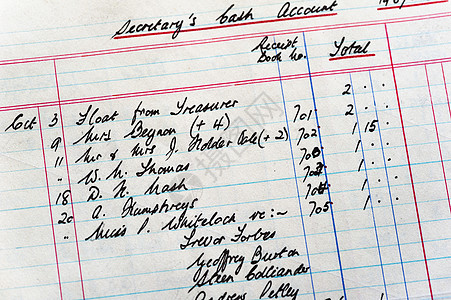 Secretary's Cash Account
Receipt Book No. Total
Oct 3 Float from Treasurer 2 . .
9 Mrs Beynon (+ 4) 701 2 . .
11 Mr & Mrs J. Holder (+ 2) 702 1 15 .
" W. N. Thomas 1 . .
18 D. N. Nash 1 . .
20 A. Humphreys 1 . .
" Miss P. Whitelock re:~ 705 1 . .
Trevor Forbes
Geoffrey Burton
Andrew Petley